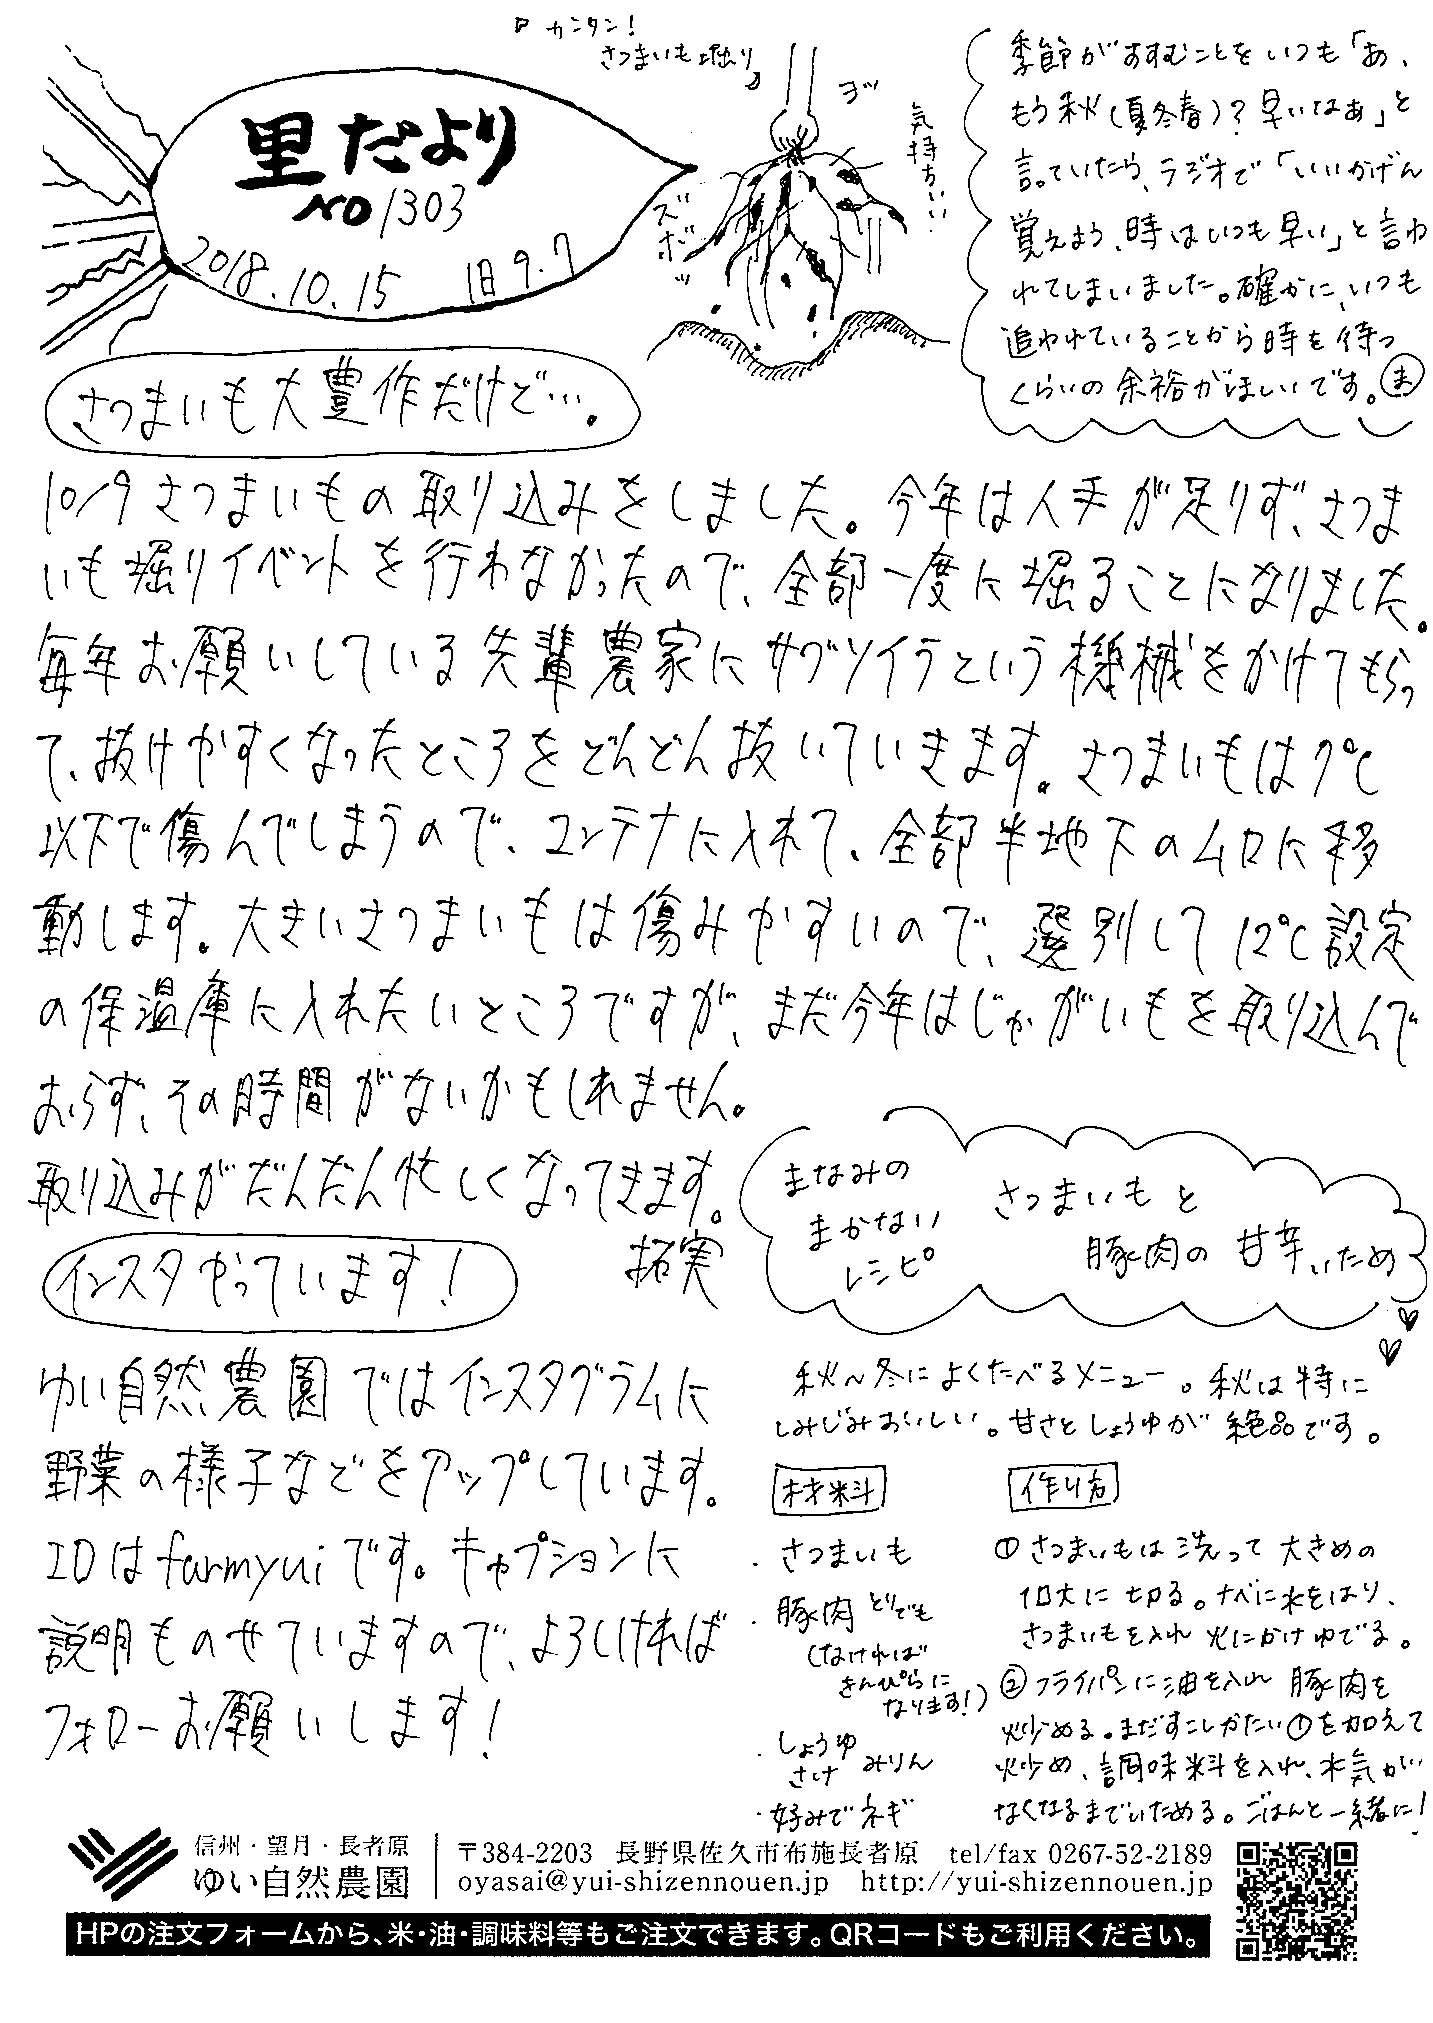 カンタン!
さつまいも掘り
ヨッ
気持ちいい
ズボッ
里だより
NO 1303
2018.10.15 旧9.7
季節がすすむことをいつも「あ、
もう秋(夏冬春)?早いなあ」と
言っていたら、ラジオで「いいかげん
覚えよう、時はいつも早い」と言わ
れてしまいました。確かに、いつも
追われていることから時を待つ
くらいの余裕がほしいです。ま
さつまいも大豊作だけど…。
10/9さつまいもの取り込みをしました。今年は人手が足りず、さつま
いも堀りイベントを行わなかったので、全部一度に堀ることになりました。
毎年お願いしている先輩農家にサブソイラという機械をかけてもらっ
て、抜けやすくなったところをどんどん抜いていきます。さつまいもは9℃
以下で傷んでしまうので、コンテナに入れて、全部半地下のムロに移
動します。大きいさつまいもは傷みやすいので、選別して12℃設定
の保温庫に入れたいところですが、まだ今年はじゃがいもを取り込んで
おらず、その時間がないかもしれません。
取り込みがだんだん忙しくなってきます。
拓実
インスタやっています!
ゆい自然農園ではインスタグラムに
野菜の様子などをアップしています。
IDはfarmyuiです。キャプションに
説明ものせていますので、よろしければ
フォローお願いします!
まなみの
まかない
レシピ
さつまいもと
豚肉の甘辛いため
秋〜冬によくたべるメニュー。秋は特に
しみじみおいしい。甘さとしょうゆが絶品です。
材料
・さつまいも
・豚肉 とりでも
(なければ
きんぴらに
なります!)
・しょうゆ みりん
さけ
・好みでネギ
作り方
①さつまいもは洗って大きめの
一口大に切る。ナベに水をはり、
さつまいもを入れ火にかけゆでる。
②フライパンに油を入れ豚肉を
炒める。まだすこしかたい①を加えて
炒め、調味料を入れ、水気が
なくなるまでいためる。ごはんと一緒に!
信州・望月・長者原
ゆい自然農園
〒384-2203 長野県佐久市布施長者原 tel/fax 0267-52-2189
oyasai@yui-shizennouen.jp http://yui-shizennouen.jp
HPの注文フォームから、米・油・調味料等もご注文できます。QRコードもご利用ください。